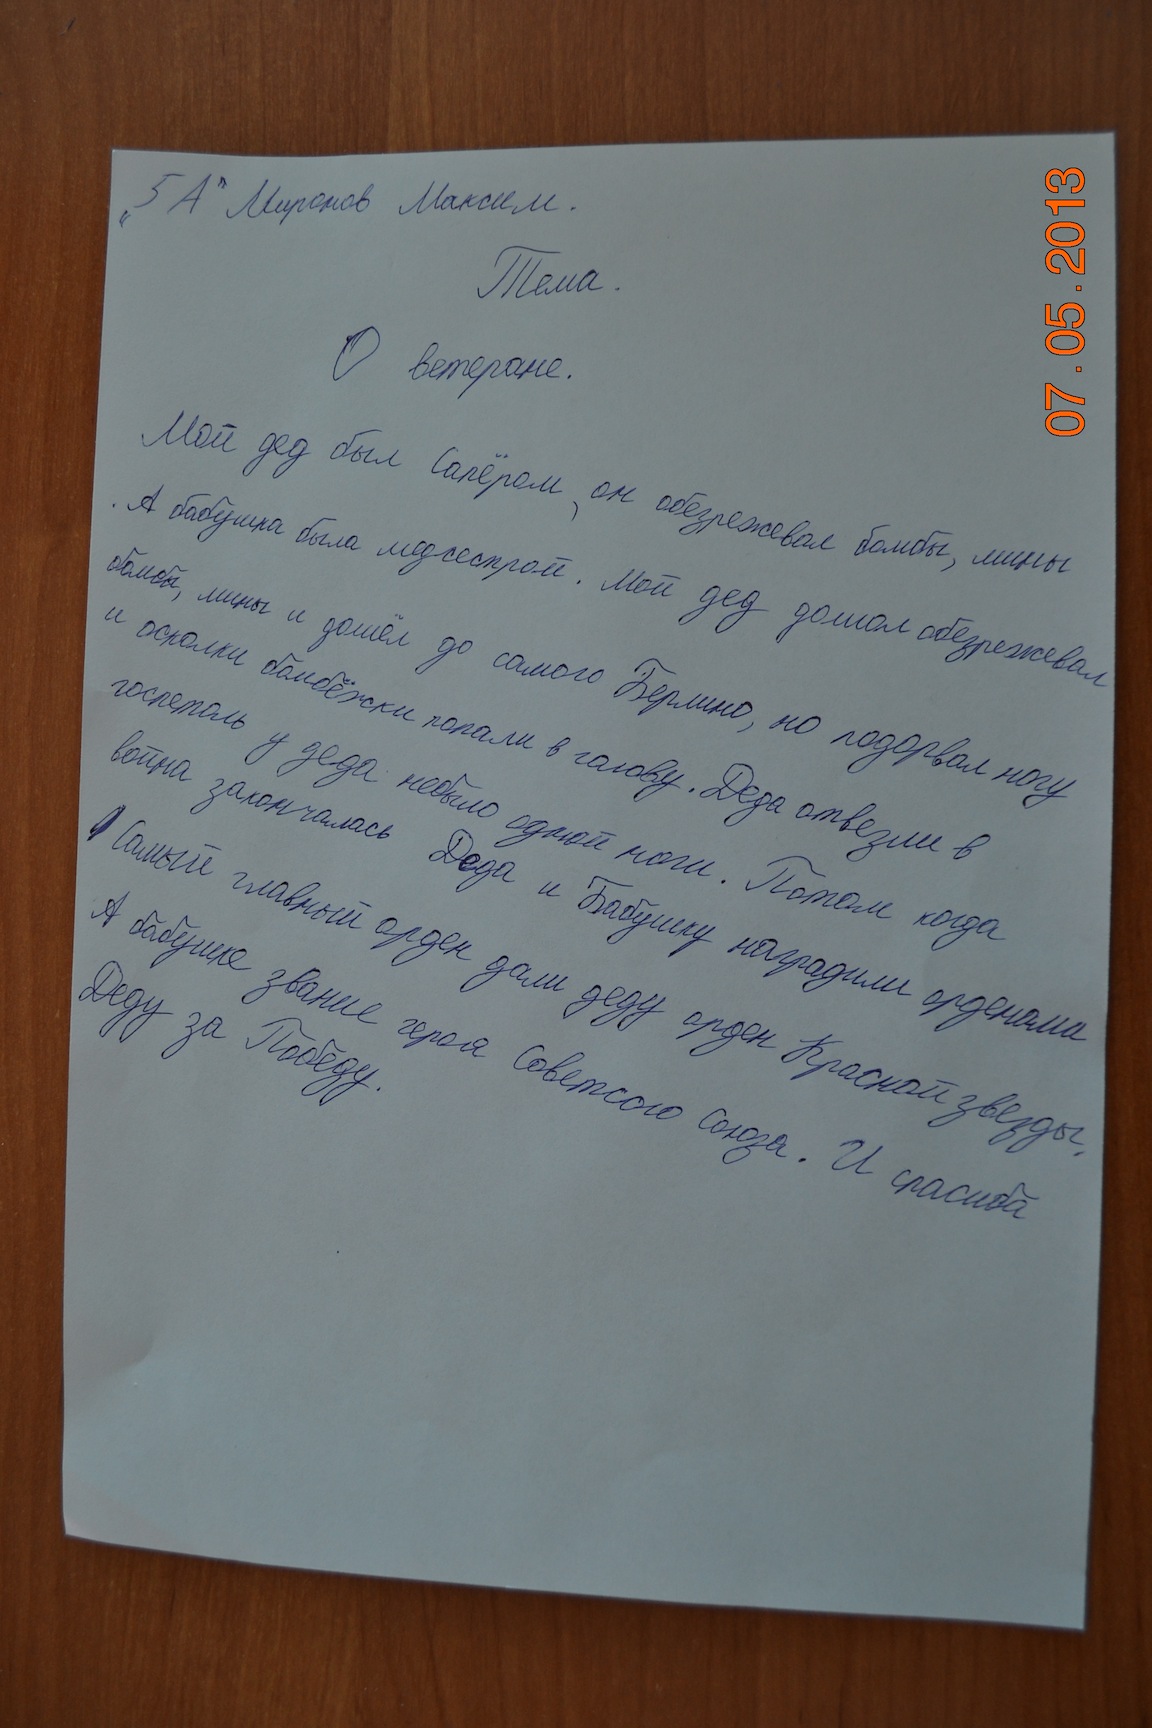 „5 А" Миронов Максим.
Тема.
О ветеране.
Мой дед был Сапёром, он обезрежевал бомбы, мины
. А бабушка была медсестрой. Мой дед дошол обезрежевал
бомбы, мины и дошёл до самого Берлина, но подорвал ногу
и осколки бомбёжски попали в галову. Деда отвезли в
госпеталь у деда небыло одной ноги. Потом когда
война закончалась Деда и Бабушку наградили орденама
Самый главный орден дали деду орден Красной звезды.
А бабушке звание героя Советсого Союза. И спасиба
Деду за Победу.
07.05.2013